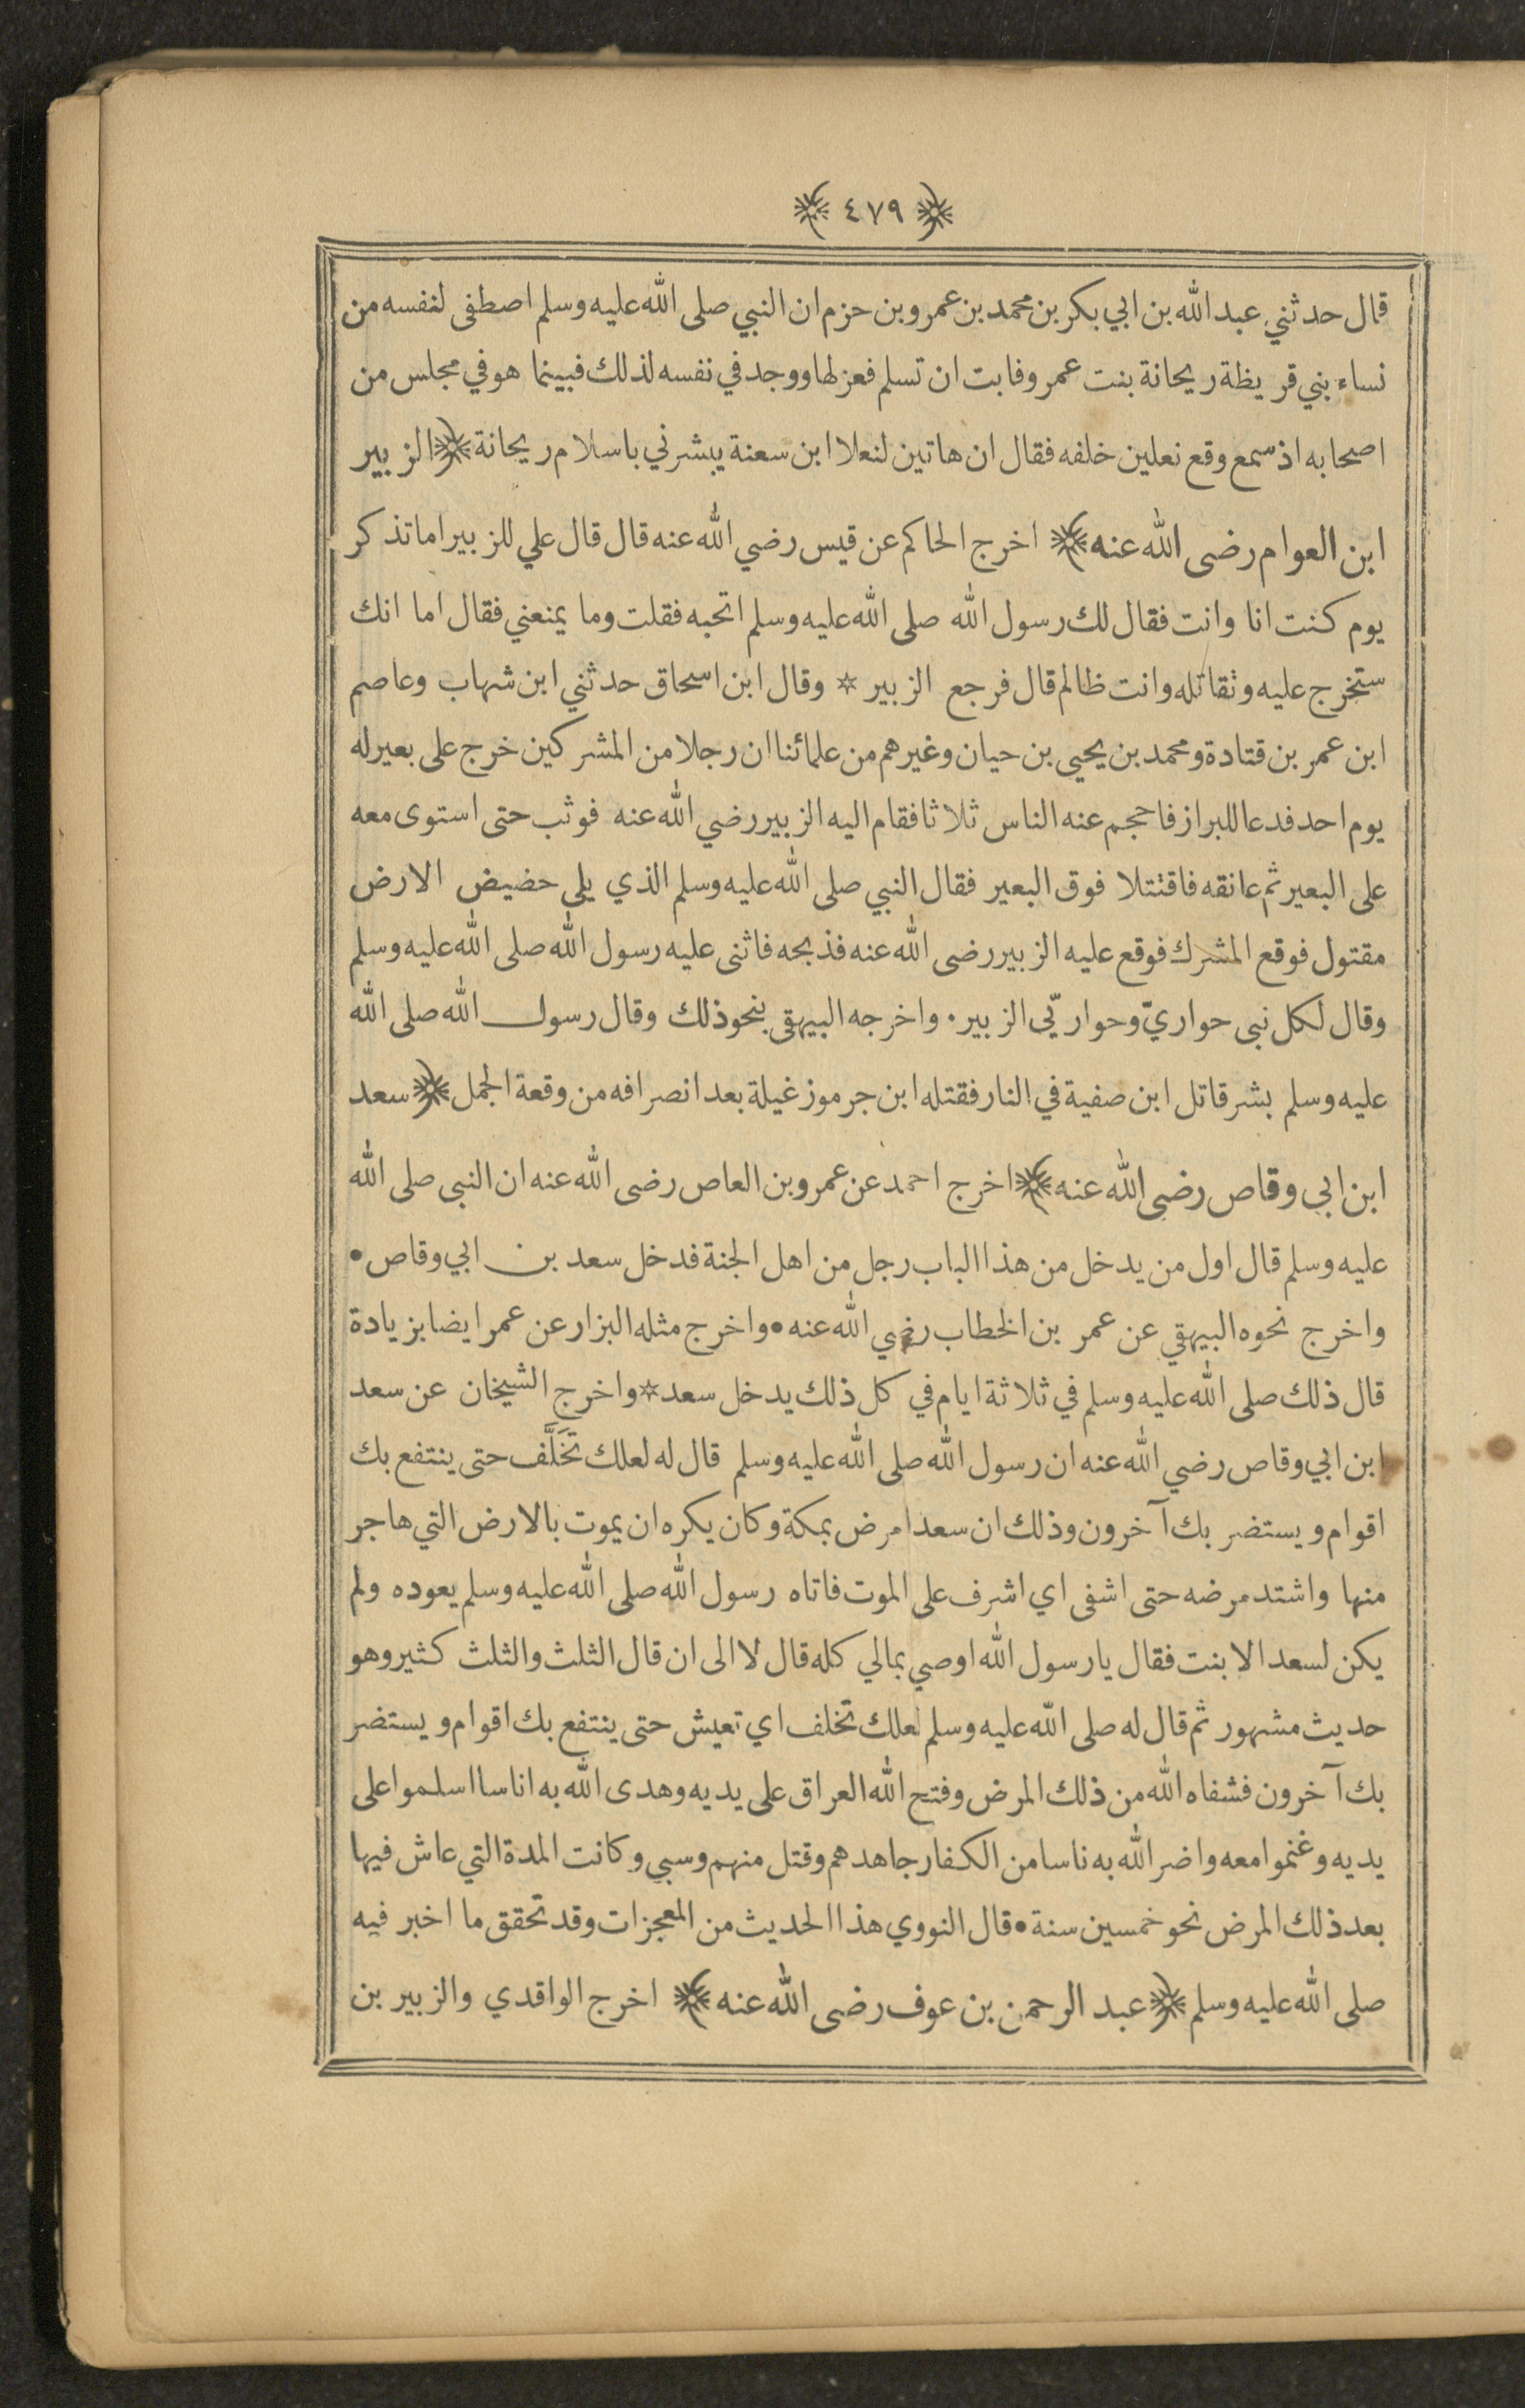 ﴿ ٤٧٩ ﴾
قال حدثني عبد الله بن ابي بكر بن محمد بن عمرو بن حزم ان النبي صلى الله عليه وسلم اصطفى لنفسه من
نساء بني قريظة ريحانة بنت عمرو فابت ان تسلم فعزلها ووجد في نفسه لذلك فبينما هو في مجلس من
اصحابه اذ سمع وقع نعلين خلفه فقال ان هاتين لنعلا ابن سعنة يبشرني باسلام ريحانة ﴿ الزبير
ابن العوام رضى الله عنه ﴾ اخرج الحاكم عن قيس رضي الله عنه قال قال علي للزبير اما تذكر
يوم كنت انا وانت فقال لك رسول الله صلى الله عليه وسلم اتحبه فقلت وما يمنعني فقال اما انك
ستخرج عليه وتقاتله وانت ظالم قال فرجع الزبير * وقال ابن اسحاق حدثني ابن شهاب وعاصم
ابن عمر بن قتادة ومحمد بن يحيى بن حيان وغيرهم من علمائنا ان رجلا من المشركين خرج على بعير له
يوم احد فدعا للبراز فاحجم عنه الناس ثلاثا فقام اليه الزبير رضي الله عنه فوثب حتى استوى معه
على البعير ثم عانقه فاقتتلا فوق البعير فقال النبي صلى الله عليه وسلم الذي يلي حضيض الارض
مقتول فوقع المشرك فوقع عليه الزبير رضى الله عنه فذبحه فاثنى عليه رسول الله صلى الله عليه وسلم
وقال لكل نبى حواريّ وحواريّي الزبير • واخرجه البيهقى بنحو ذلك وقال رسول الله صلى الله
عليه وسلم بشر قاتل ابن صفية في النار فقتله ابن جرموز غيلة بعد انصرافه من وقعة الجمل ﴿ سعد
ابن ابي وقاص رضى الله عنه ﴾ اخرج احمد عن عمرو بن العاص رضى الله عنه ان النبى صلى الله
عليه وسلم قال اول من يدخل من هذا الباب رجل من اهل الجنة فدخل سعد بن ابي وقاص •
واخرج نحوه البيهقي عن عمر بن الخطاب رضي الله عنه • واخرج مثله البزار عن عمر ايضا بزيادة
قال ذلك صلى الله عليه وسلم في ثلاثة ايام في كل ذلك يدخل سعد * واخرج الشيخان عن سعد
ابن ابي وقاص رضي الله عنه ان رسول الله صلى الله عليه وسلم قال له لعلك تَخَلَّف حتى ينتفع بك
اقوام ويستضر بك آخرون وذلك ان سعدا مرض بمكة وكان يكره ان يموت بالارض التي هاجر
منها واشتد مرضه حتى اشفى اي اشرف على الموت فاتاه رسول الله صلى الله عليه وسلم يعوده ولم
يكن لسعد الا بنت فقال يا رسول الله اوصي بمالي كله قال لا الى ان قال الثلث والثلث كثير وهو
حديث مشهور ثم قال له صلى الله عليه وسلم لعلك تخلف اي تعيش حتى ينتفع بك اقوام ويستضر
بك آخرون فشفاه الله من ذلك المرض وفتح الله العراق على يديه وهدى الله به اناسا اسلموا على
يديه وغنموا معه واضر الله به ناسا من الكفار جاهدهم وقتل منهم وسبي وكانت المدة التي عاش فيها
بعد ذلك المرض نحو خمسين سنة • قال النووي هذا الحديث من المعجزات وقد تحقق ما اخبر فيه
صلى الله عليه وسلم ﴿ عبد الرحمن بن عوف رضى الله عنه ﴾ اخرج الواقدي والزبير بن